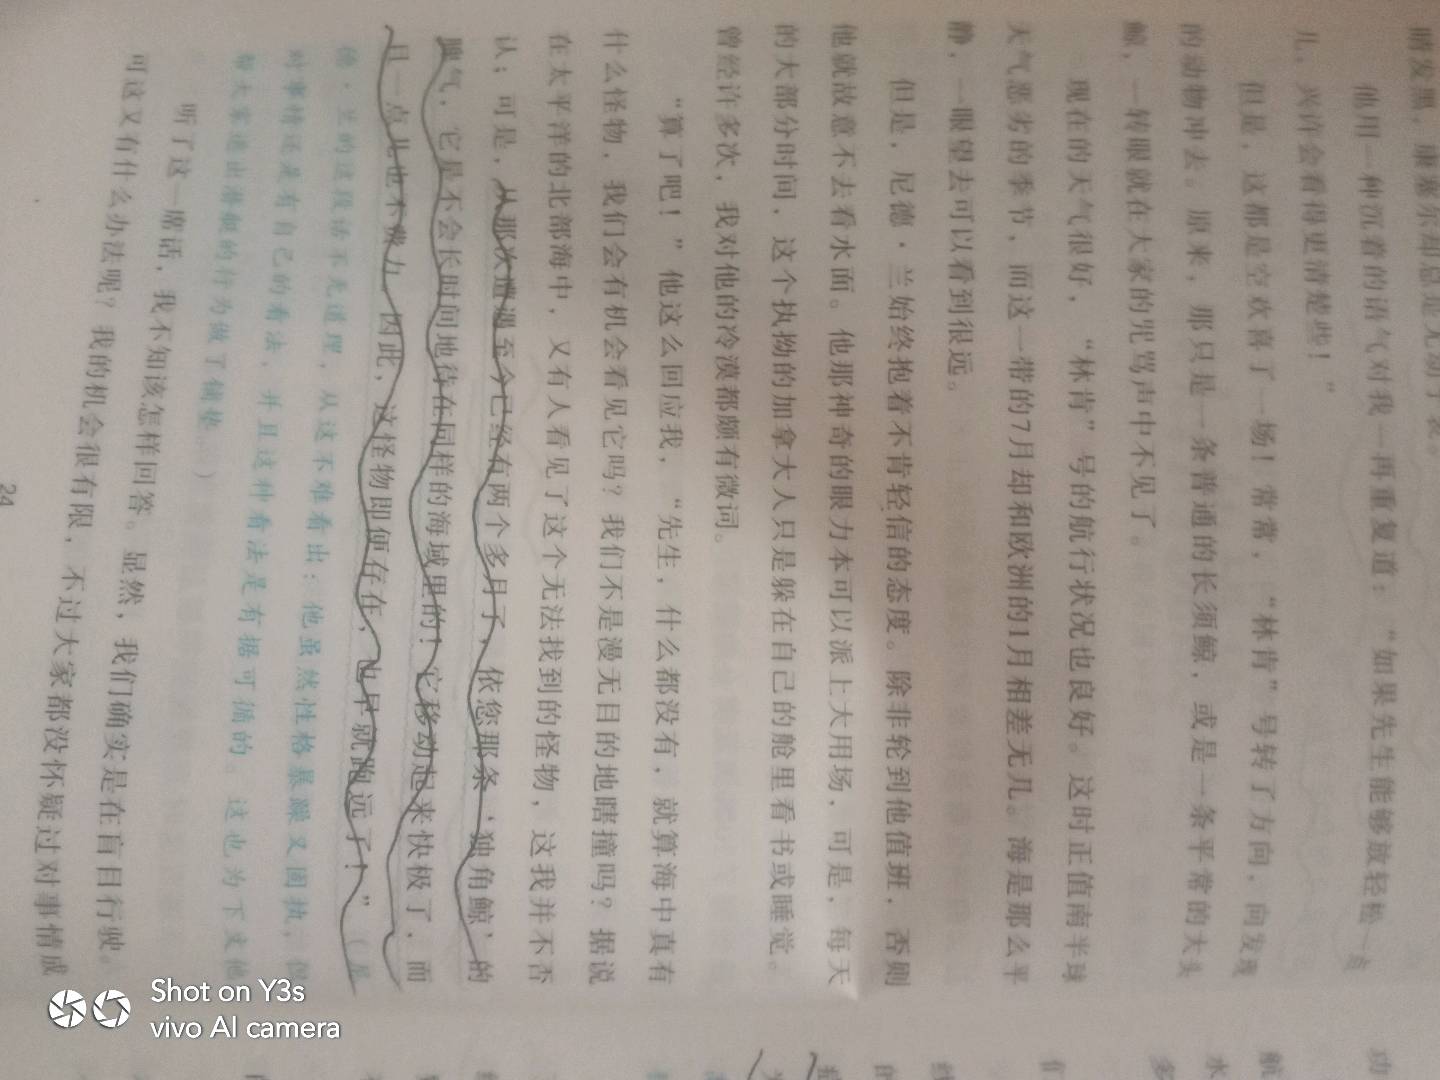 睛发黑，康塞尔却总是无动于衷。
他用一种沉着的语气对我一再重复道：“如果先生能够放轻松一点
儿，兴许会看得更清楚些！”
但是，这都是空欢喜了一场！常常，“林肯”号转了方向，向发现
的动物冲去。原来，那只是一条普通的长须鲸，或是一条平常的大头
鲸，一转眼就在大家的咒骂声中不见了。
现在的天气很好，“林肯”号的航行状况也良好。这时正值南半球
天气恶劣的季节，而这一带的7月却和欧洲的1月相差无几。海是那么平
静，一眼望去可以看到很远。
但是，尼德·兰始终抱着不肯轻信的态度。除非轮到他值班，否则
他就故意不去看水面。他那神奇的眼力本可以派上大用场，可是，每天
的大部分时间，这个执拗的加拿大人只是躲在自己的舱里看书或睡觉。
曾经许多次，我对他的冷漠都颇有微词。
“算了吧！”他这么回应我，“先生，什么都没有，就算海中真有
什么怪物，我们会有机会看见它吗？我们不是漫无目的地瞎撞吗？据说
在太平洋的北部海中，又有人看见了这个无法找到的怪物，这我并不否
认；可是，从那次遭遇至今已经有两个多月了，依您那条‘独角鲸’的
脾气，它是不会长时间地待在同样的海域里的！它移动起来快极了，而
且一点儿也不费力，因此，这怪物即便存在，也早就跑远了！”（尼
德·兰的这段话不无道理，从这不难看出：他虽然性格暴躁又固执，但
对事情还是有自己的看法，并且这种看法是有据可循的。这也为下文他
帮大家逃出潜艇的行为做了铺垫……）
听了这一席话，我不知该怎样回答。显然，我们确实是在盲目行驶。
可这又有什么办法呢？我的机会很有限，不过大家都没怀疑过对事情成
24
功
航
水
Shot on Y3s
vivo AI camera